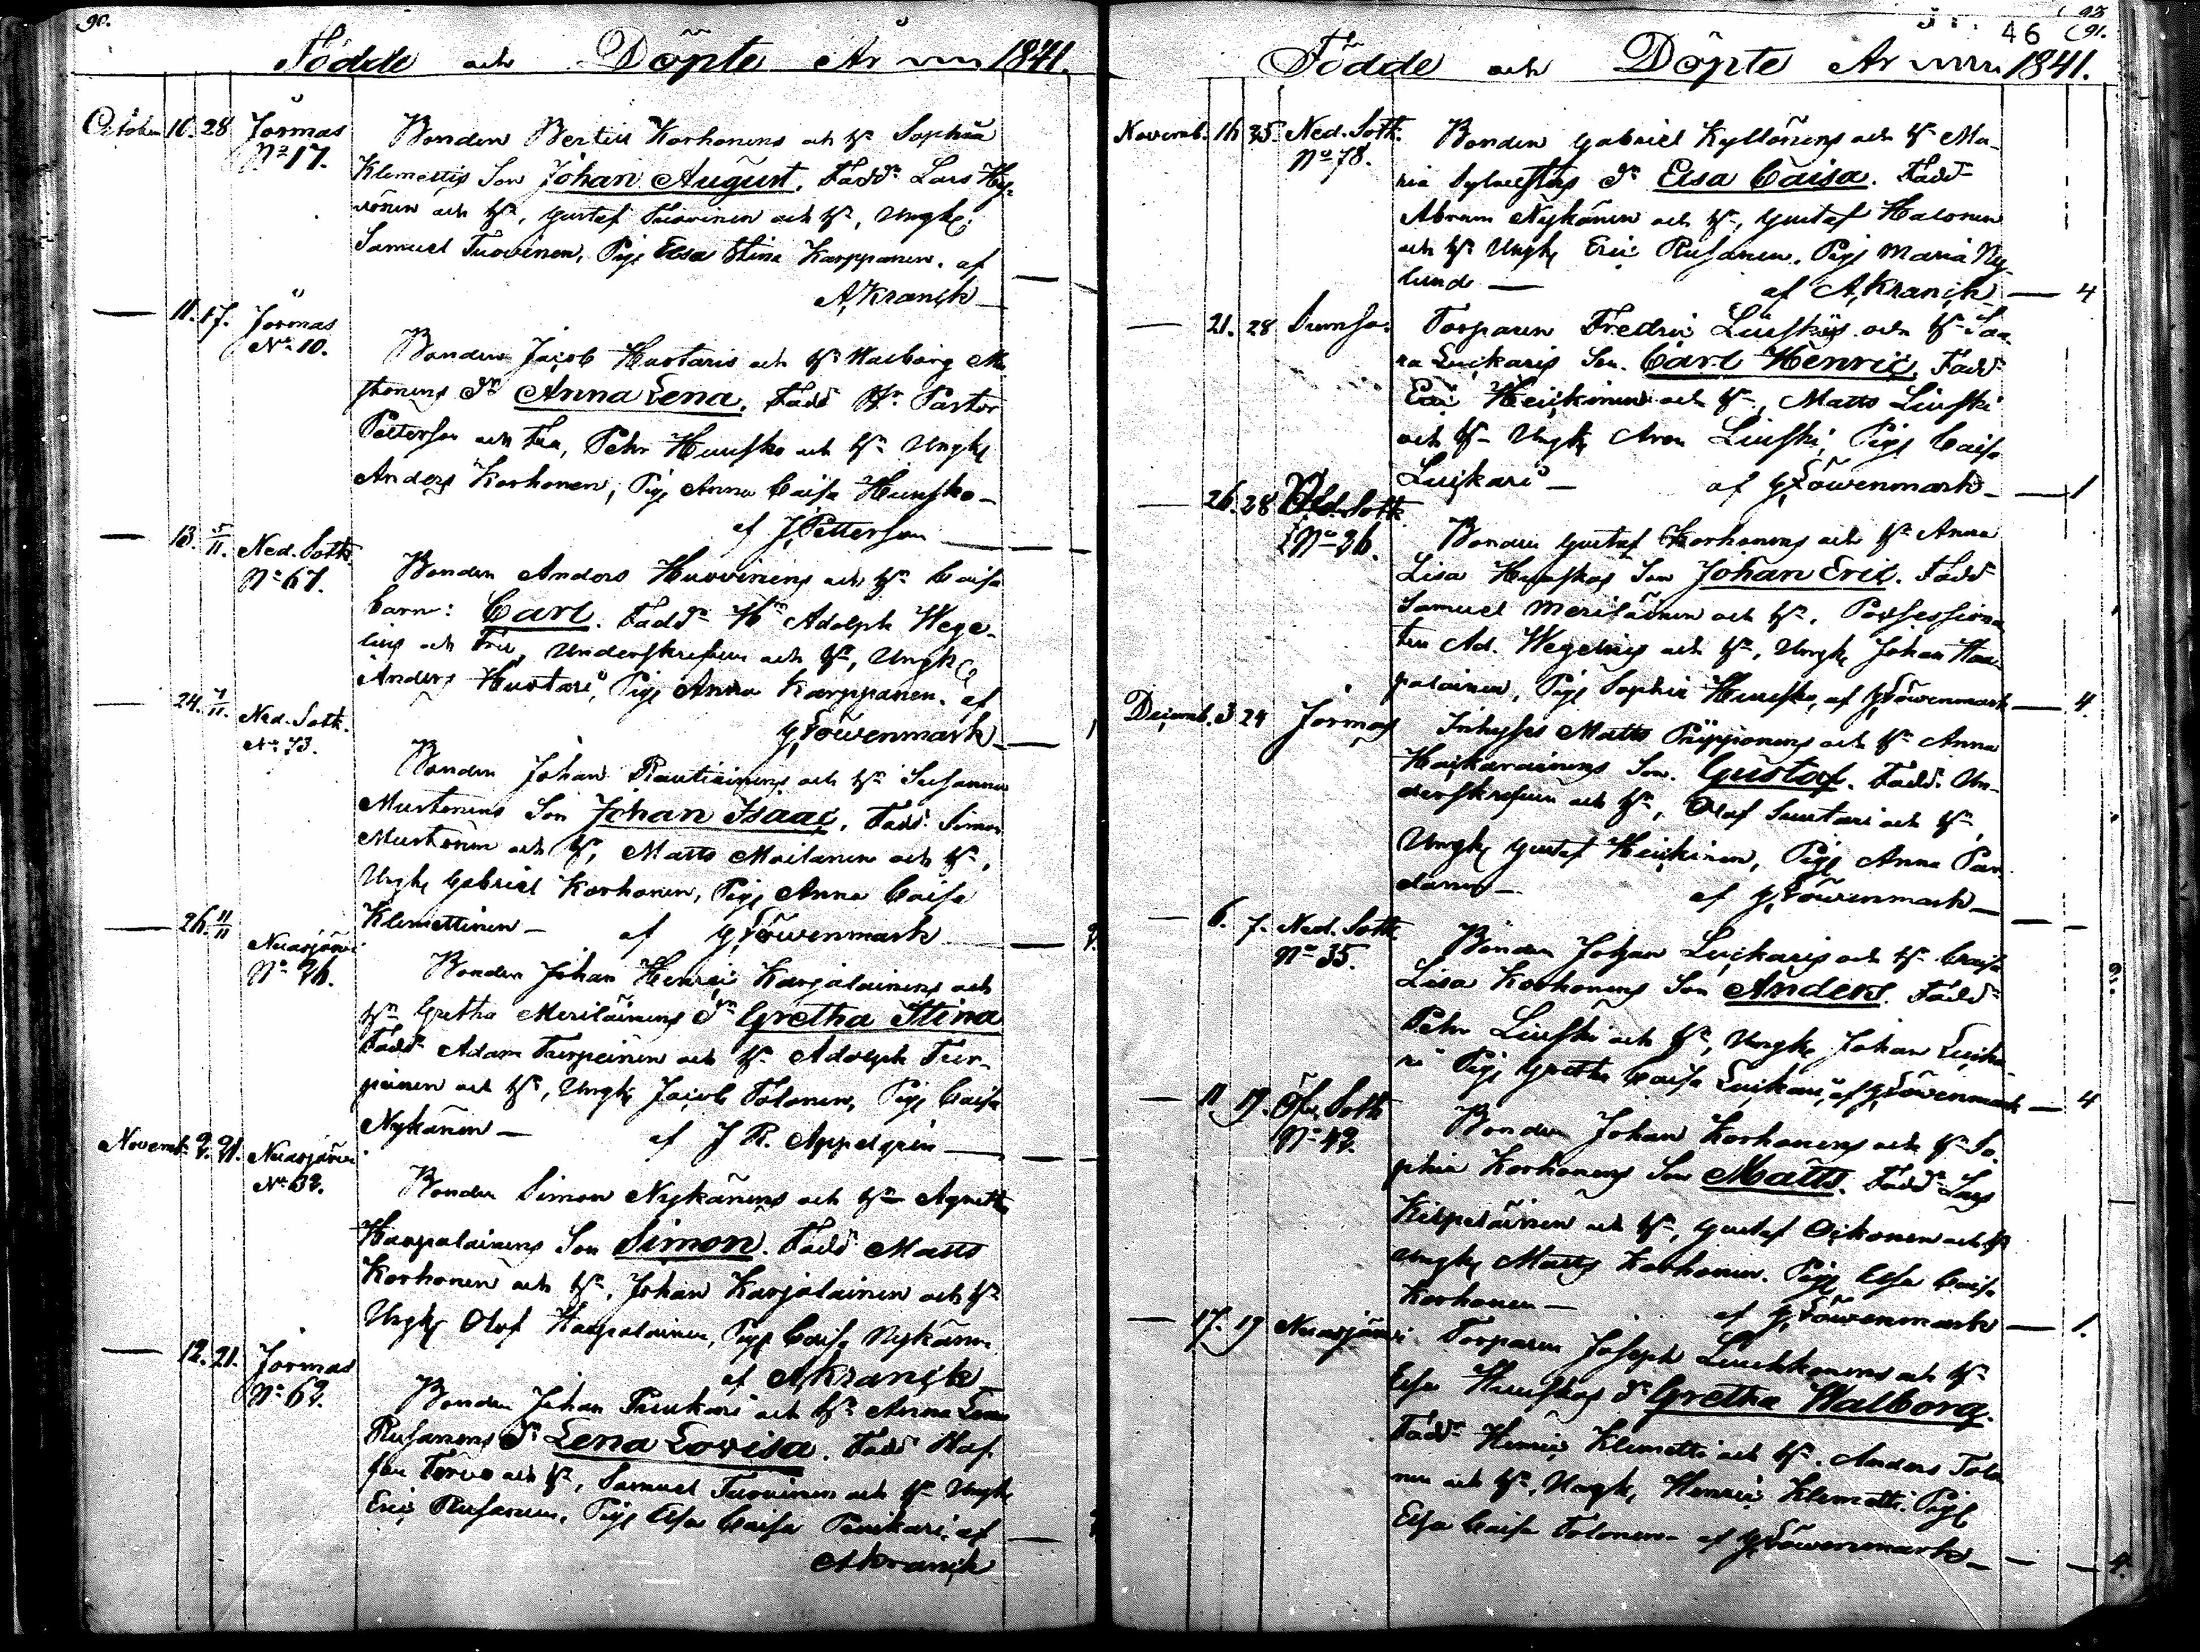 90.
Födde och Döpte År 1841.
October 10. 28 Jormas Bonden Bertill Korhonens och H:u Sophia
No 17. Klemettis Son Johan August. Fadd:r Lars Hey-
och H:u, Gustaf Tuovinen och H:u, Ungk:
Samuel Tuovinen, Pig: Elsa Stina Karppanen. af
A, Kranck
11. 17. Jormas
No 10. Bonden Jacob Huotaris och H:u Walborg Mu-
stonens D:r Anna Lena. Fadd:r H:r Pastor
Petterson och Fru, Pehr Huusko och H:u Ungk:
Anders Korhonen, Pig: Anna Caisa Huusko
af J, Petterson
13. 5/11. Ned. Sotk.
No 67. Bonden Anders Huovinens och H:u Caisa
barn: Carl. Fadd:r H:r Adolph Wege-
lius och Fru, Underskrefven och H:u, Ungk:
Anders Huotari, Pig: Anna Karppanen. af
G, Löwenmark
24. 7/11. Ned. Sotk.
No 73. Bonden Johan Rautiainens och H:u Susanna
Mustonens Son Johan Isaac. Fadd: Simon
Mustonen och H:u, Matts Moilanen och H:u,
Ungk: Gabriel Korhonen, Pig: Anna Caisa
Klemettinen af G, Löwenmark
26. 11/11 Nuasjärvi
No 26. Bonden Johan Henric Karjalainens och
H:u Gretha Meriläinens D:r Gretha Stina
Fadd:r Adam Turpeinen och H:u Adolph Tur-
peinen och H:u, Ungk: Jacob Tolonen, Pig: Caisa
Nykänen af J R. Appelgrin
Novemb. 9. 21. Nuasjärvi
No 32. Bonden Simon Nykänens och H:u Agneta
Haapalainens Son Simon. Fadd:r Matts
Korhonen och H:u, Johan Karjalainen och H:u
Ungk: Olof Haapalainen, Pig: Caisa Nykänen
af A, Kranck
12. 21. Jormas
No 62. Bonden Johan Piukari och H:u Anna Lena
Rusanens D:r Lena Lovisa. Fadd:r
Tervo och H:u, Samuel Tuovinen och H:u Ungk:
Eric Rusanen, Pig: Elsa Caisa Piukari, af
A Kranck
46 91.
Födde och Döpte År 1841.
Novemb. 16 25. Ned. Sotk. Bonden Gabriel Kyllönens och H:u Ma-
No 78. ria Sylvesters D:r Elsa Caisa. Fadd:r
Abram Nykänen och H:u, Gustaf Halonen
och H:u Ungk: Eric Rusanen. Pig: Maria Ny-
lund af A, Kranck 4
21. 28 Torparen Fredric Liuskis och H:u Saa-
ra Luikaris Son. Carl Henric. Fadd:r
Eric Heickinen och H:u, Matts Liuski
och H:u Ungk: Aron Liuski, Pig: Caisa
Luikari af G, Löwenmark 1
26. 28 Ned. Sotk.
No 36. Bonden Gustaf Korhonens och H:u Anna
Lisa Huuskos Son Johan Eric. Fadd:r
Samuel Meriläinen och H:u, Possessiona-
ten Ad. Wegelius och H:u, Ungk: Johan Haa-
palainen, Pig: Sophia Huusko, af G, Löwenmark 4.
Decemb. 3 24 Jormas Inhyses Matts Piipponens och H:u Anna
Haikarainens Son. Gustaf. Fadd. Un-
derskrefven och H:u, Olof Suutari och H:u,
Ungk: Gustaf Heickinen, Pig: Anna Par-
danen af G, Löwenmark
6. 7. Ned. Sotk.
No 35. Bonden Johan Luikaris och H:u Caisa
Lisa Korhonens Son Anders. Fadd:r
Pehr Liuski och H:u, Ungk: Johan Luika-
ri Pig: Gretha Caisa Luikari, af G, Löwenmark 4
11 19. Öfv. Sotk
No 42. Bonden Johan Korhonens och H:u So-
phia Korhonens Son Matts. Fadd:r Lars
Kilpeläinen och H:u, Gustaf Oikonen och H:u
Ungk: Matts Korhonen. Pig: Elsa Caisa
Korhonen af G, Löwenmark 1.
17. 19 Nuasjärvi Torparen Joseph Leinhkonens och H:u
Elsa Huuskos D:r Gretha Walborg.
Fadd:r Henric Klemetti och H:u. Anders Tolo-
nen och H:u, Ungk: Henric Klemetti. Pig:
Elsa Caisa Tolonen af G, Löwenmark 4.